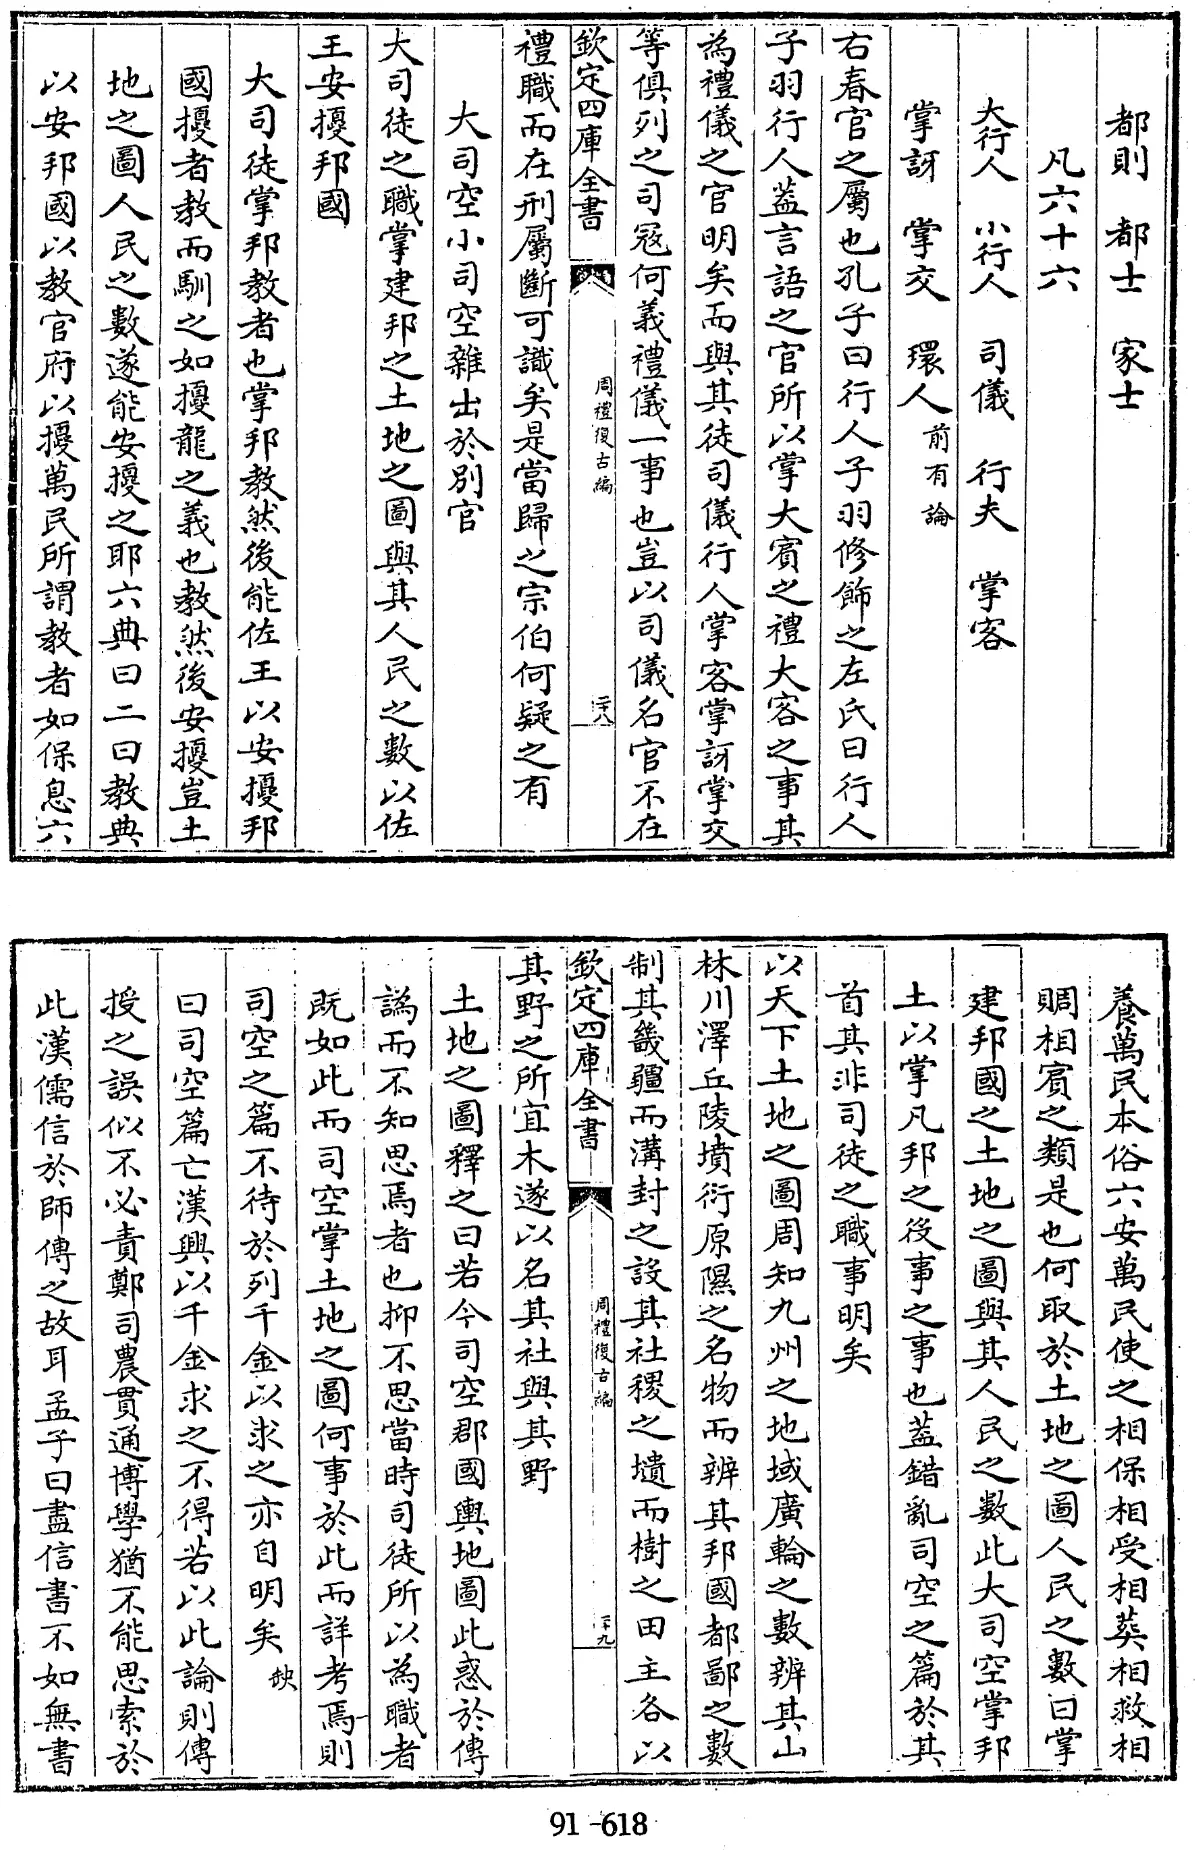 都則　都士　家士
凡六十六
大行人　小行人　司儀　行夫　掌客
掌訝　掌交　環人前有論
右春官之屬也孔子曰行人子羽修飾之左氏曰行人
子羽行人葢言語之官所以掌大賓之禮大客之事其
為禮儀之官明矣而與其徒司儀行人掌客掌訝掌交
等俱列之司宼何義禮儀一事也豈以司儀名官不在
欽定四庫全書　周禮復古編　二十八
禮職而在刑屬斷可識矣是當歸之宗伯何疑之有
大司空小司空雜出於別官
大司徒之職掌建邦之土地之圖與其人民之數以佐
王安擾邦國
大司徒掌邦教者也掌邦教然後能佐王以安擾邦
國擾者教而馴之如擾龍之義也教然後安擾豈土
地之圖人民之數遂能安擾之耶六典曰二曰教典
以安邦國以教官府以擾萬民所謂教者如保息六
養萬民本俗六安萬民使之相保相受相葬相救相
賙相賓之類是也何取於土地之圖人民之數曰掌
建邦國之土地之圖與其人民之數此大司空掌邦
土以掌凡邦之役事之事也葢錯亂司空之篇於其
首其非司徒之職事明矣
以天下土地之圖周知九州之地域廣輪之數辨其山
林川澤丘陵墳衍原隰之名物而辨其邦國都鄙之數
制其畿疆而溝封之設其社稷之壝而樹之田主各以
欽定四庫全書　周禮復古編　二十九
其野之所宜木遂以名其社與其野
土地之圖釋之曰若今司空郡國輿地圖此惑於傳
譌而不知思焉者也抑不思當時司徒所以為職者
既如此而司空掌土地之圖何事於此而詳考焉則
司空之篇不待於列千金以求之亦自明矣缺
曰司空篇亡漢興以千金求之不得若以此論則傳
授之誤似不必責鄭司農貫通博學猶不能思索於
此漢儒信於師傳之故耳孟子曰盡信書不如無書
91-618